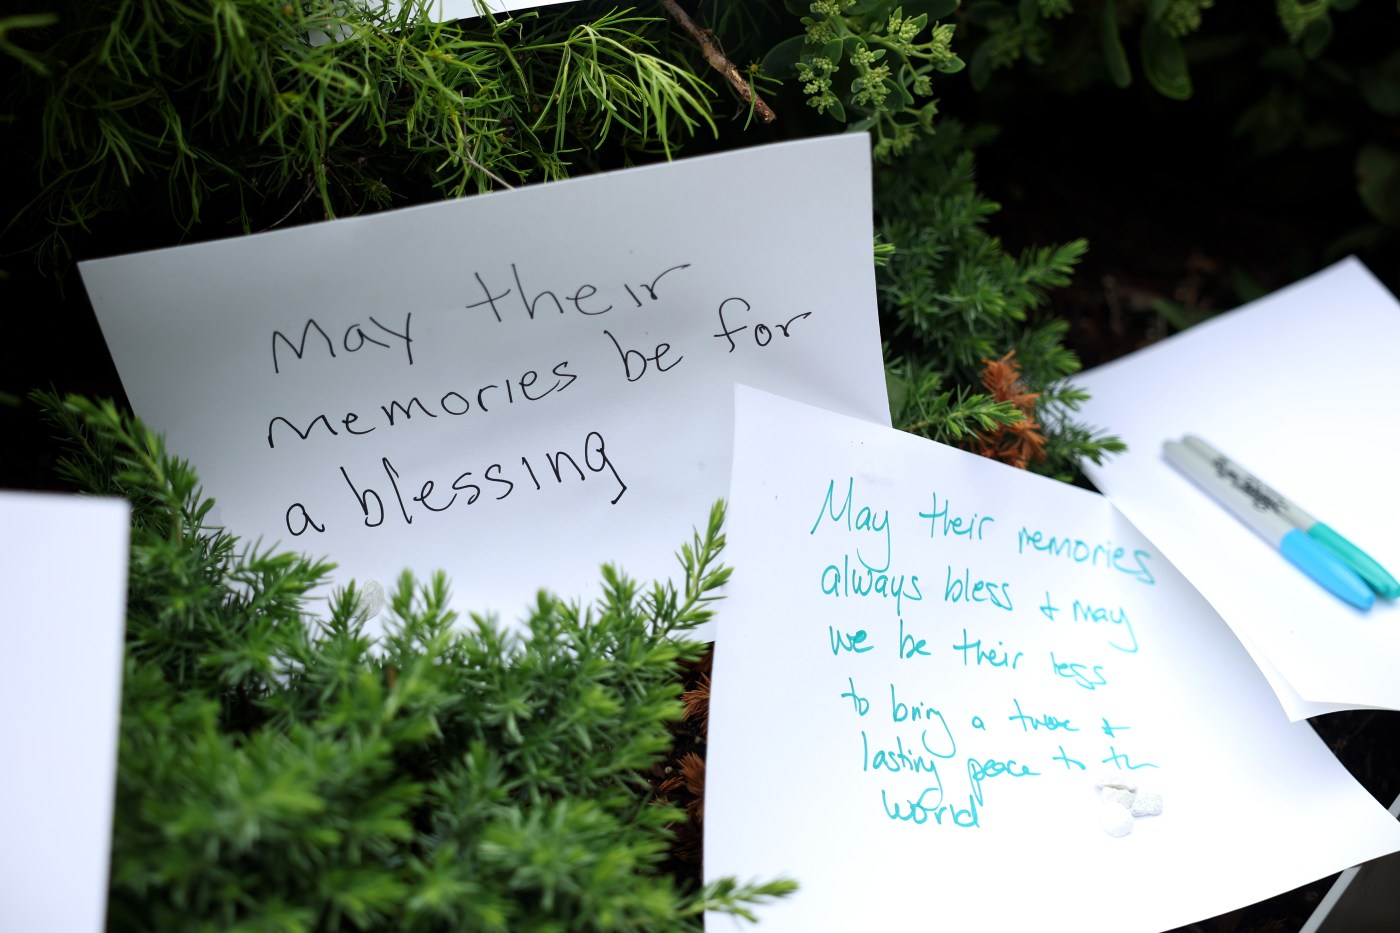 May their
memories be for
a blessing
May their memories
always bless + may
we be their
to bring a +
lasting peace to
world
Sharpie